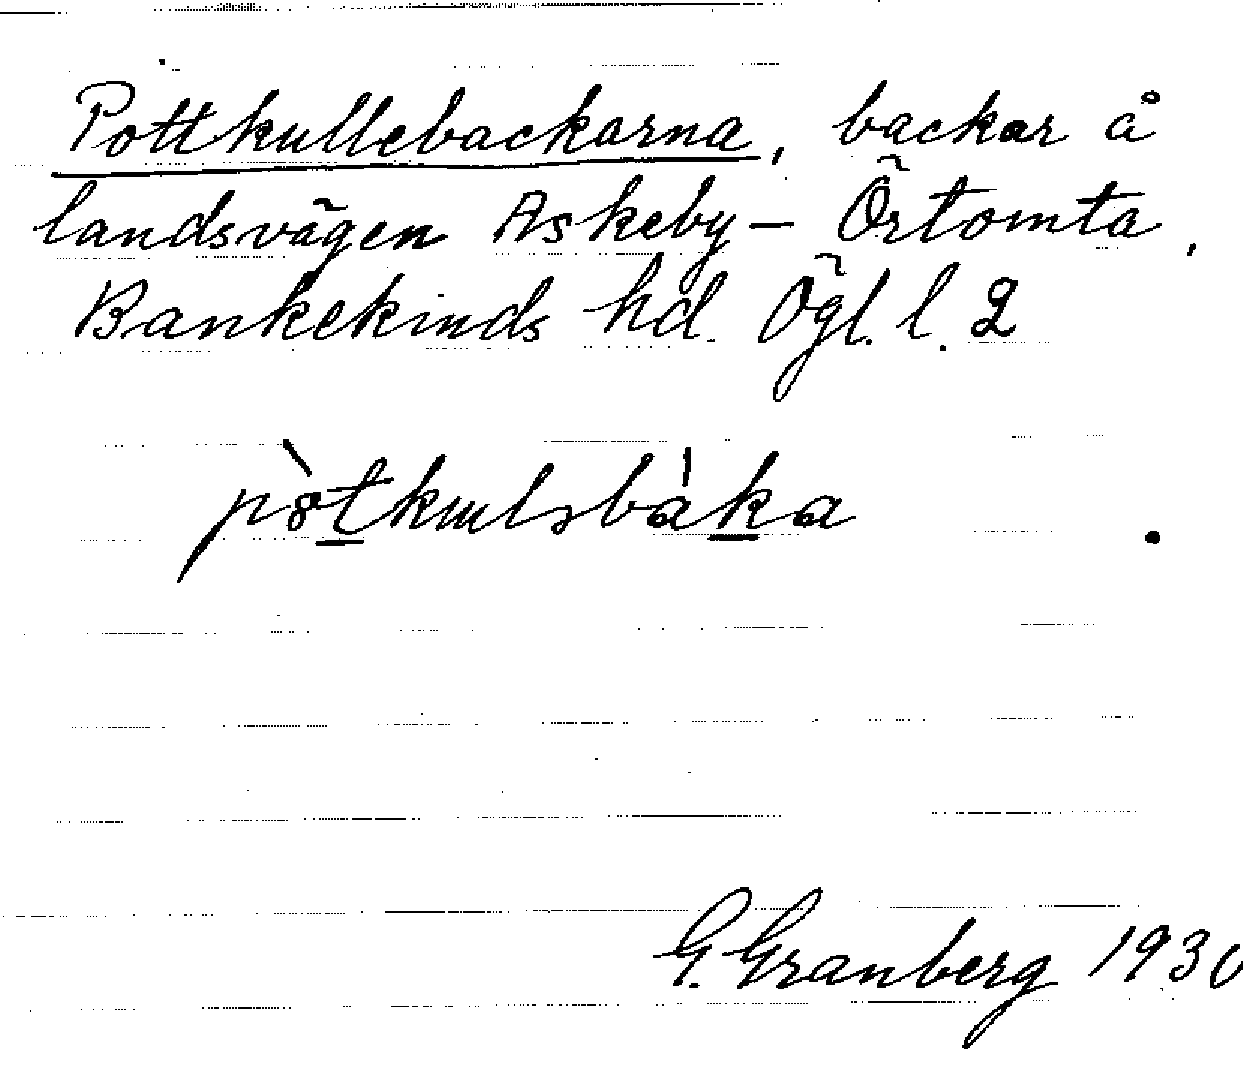 Pottkullebackarna, backar å
landsvägen Askeby – Örtomta,
Bankekinds hd. Ögl. l. 2
G. Granberg 1930